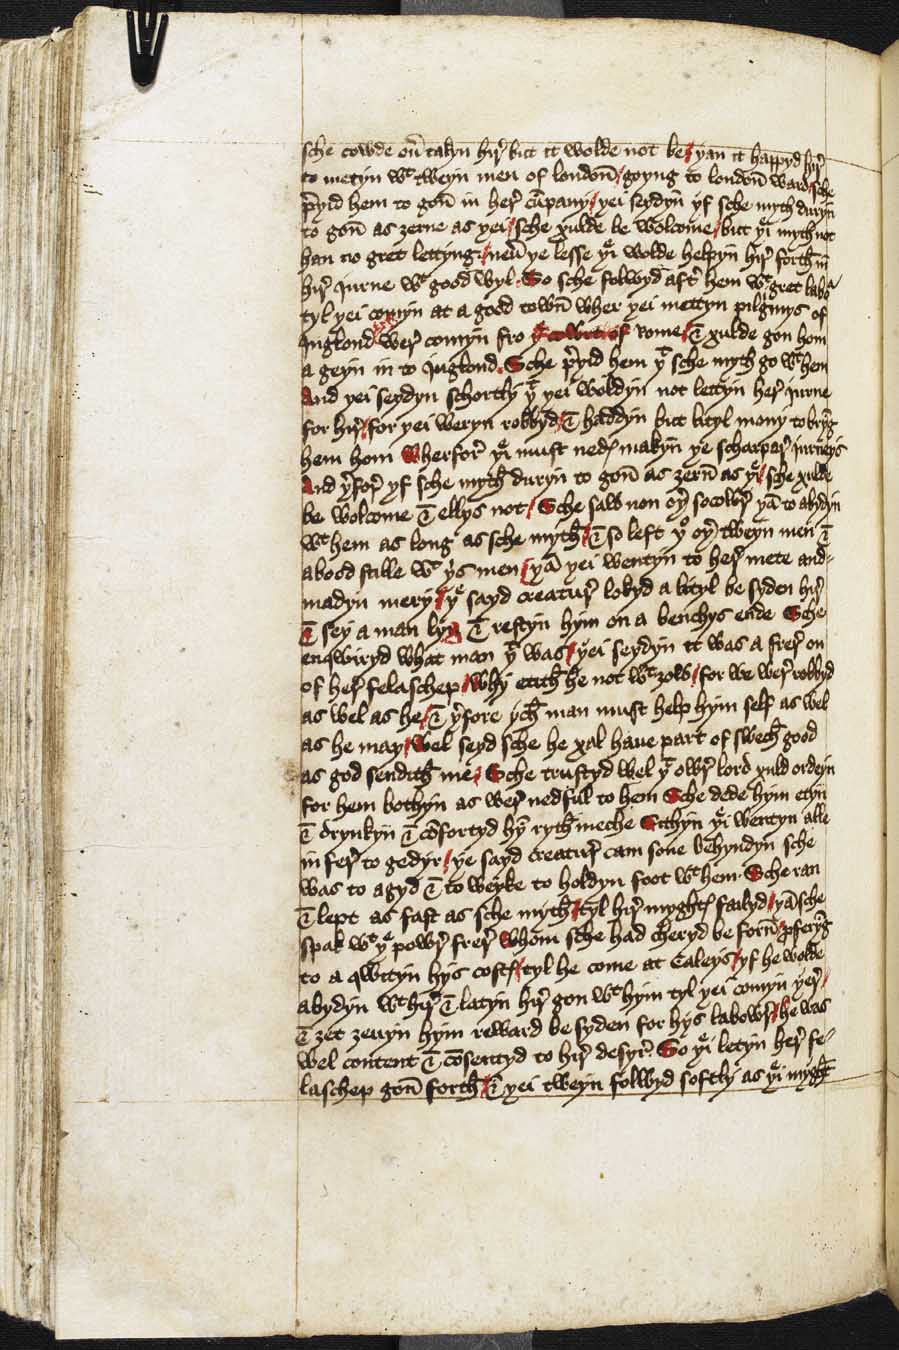 sche cowde ou̅ takyn hir̉ but it wolde not be / yan it happyd hir̉
to metyn wt tweyn men of london̅ / goyng to london̅ ward / sche
p̉yid hem to gon̅ in her̉ cu̅pany / yei seydyn yf sche myth duryn
to gon̅ as zerne as yei / sche xulde be wolcome / but yei myth not
han no gret lettyng. / neu̅ ye lesse yei wolde helpyn hir̉ forth̅ in
hir̉ jurne wt good wyl. So sche folwyd aft̉ hem wt gret laboa
tyl yei comyn at a good town̅ wher yei mettyn pilg̉mys of
Inglond wer̉ comyn fro ye cowrt of rome / & xulde gon hom
a geyn in to Inglond. Sche p̉yid hem yt sche myth go wt hem
And yei seydyn schortly yt yei woldyn not lettyn her̉ jurne
for hir̉ / for yei weryn robbyd / & haddyn but lityl mony to bryg̅
hem hom Wherfor̉ yei must nedꝭ makyn ye scharpar̉ jurneys
And ỷfor̉ yf sche myth̅ duryn to gon̅ as zern̅ as yei / sche xulde
be wolcome & ellys not / Sche saw non oỷ socowr̉ ya̅ to abydyn
wt hem as long as sche myth̅ / & so left ye oỷ tweyn men &
abood stille wt ỷs men / ya̅ yei wentyn to her̉ mete and-
madyn mery / ye sayd creatur̉ lokyd a lityl be syden hir̉
& sey a man lyg & restyn hym on a benchys ende Sche
enqwiryd what man yt was / yei seydyn it was a frer̉ on
of her̉ felaschep / Why etith̅ he not wt zow / for we wer̉ robbyd
as wel as he / & ỷfore ych̅ man must help hym self as wel
as he may / Wel seyd sche he xal haue part of swech̅ good
as god sendith̅ me / Sche trustyd wel yt owr̉ lord xuld ordeyn
for hem bothyn as wer̉ nedful to hem Sche dede hym etyn
& drynkyn & co̅fortyd hy̅ ryth̅ meche Sithyn yei wentyn alle
in fer̉ to gedyr / ye sayd creatur̉ cam sone behyndyn sche
was to agyd & to weyke to holdyn foot wt hem. Sche ran
& lept as fast as sche myth̅ / tyl hir̉ myghtꝭ failyd / ya̅ sche
spak wt ye powr̉ frer̉ Whom sche had cheryd be forn̅ / pfery̅g
to a qwityn hys costꝭ / tyl he come at Caleys / yf he wolde
abydyn wt hir̉ & latyn hir̉ gon wt hym tyl yei comyn yer̉ /
& zet zeuyn hym reward be syden for hys labowr̉ / he was
wel content & co̅sentyd to hir̉ desyr̉. So yei letyn her̉ fe/
laschep gon̅ forth̅ / & yei tweyn folwyd softly as yei myght̅